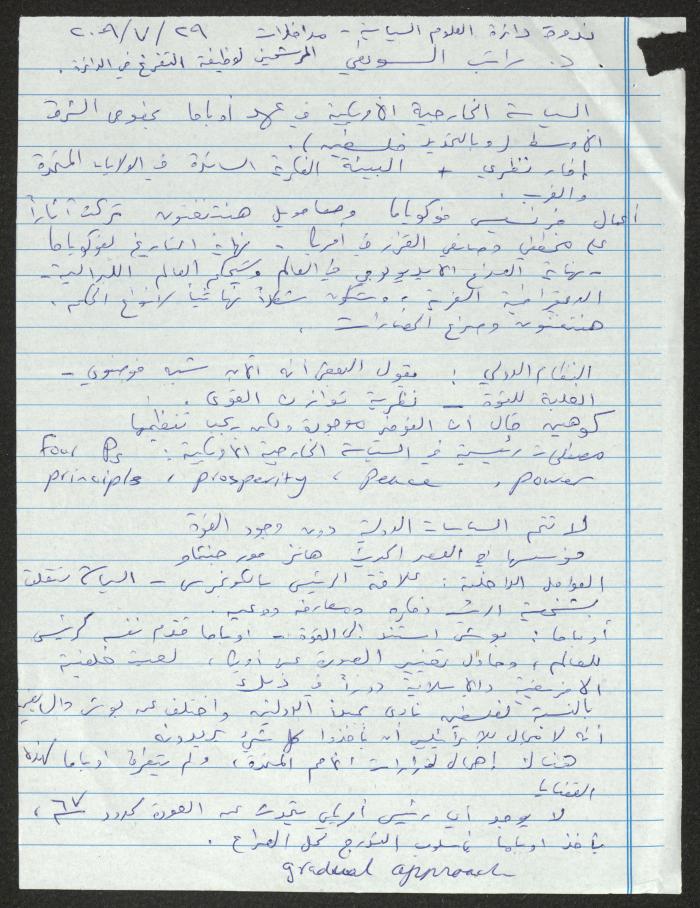 ندوة دائرة العلوم السياسية - مداخلات ٢٠٠٩/٧/٢٩
د. راتب السويطي المرشحين لوظيفة التفرغ في الدائرة.
السياسة الخارجية الأمريكية في عهد أوباما بخصوص الشرق
الأوسط (وبالتحديد فلسطين).
إطار نظري + البيئة الفكرية السائدة في الولايات المتحدة
والغرب.
أعمال فرنسيس فوكوياما وصامويل هنتنغتون تركت آثاراً
على مخططي وصانعي القرار في أمريكا - نهاية التاريخ لفوكوياما
- نهاية الصراع الايديولوجي في العالم وسيحكم العالم الليبرالية
الديمقراطية الغربية، وستكون شكلاً نهائياً لأنواع الحكم.
هنتنغتون وصراع الحضارات.
النظام الدولي: يقول البعض أنه كان شبه فوضوي -
الغلبة للقوة - نظرية توازن القوى.
كوهين قال ان الفوضى موجودة ولكن يجب تنظيمها
مصطلحات رئيسية في السياسة الخارجية الأمريكية: Four Ps
principle, prosperity, peace, power
لا تتم السياسات الدولية دون وجود القوة
مؤسسها في العصر الحديث هانز مورجنثاو
العوامل الداخلية: علاقة الرئيس بالكونغرس - السياسة تتعلق
بشخصية الرئيس وأفكاره ومعارفه ووعيه.
أوباما: بوش استند الى القوة - اوباما قدّم نفسه كرئيس
للعالم، وحاول تغيير الصورة عن أمريكا، لعبت خلفيته
الافريقية والاسلامية دوراً في ذلك
بالنسبة لفلسطين نادى بمبدأ الدولتين واختلف عن بوش وقال يعني
أنه لا مجال للإسرائيليين أن يأخذوا كل شيء يريدونه
هناك إهمال لقرارات الأمم المتحدة، ولم يتطرق اوباما لهذه
القضايا
لا يوجد أي رئيس أمريكي يتحدث عن العودة لحدود ٦٧،
يأخذ اوباما بأسلوب التدرج لحل الصراع.
gradual approach